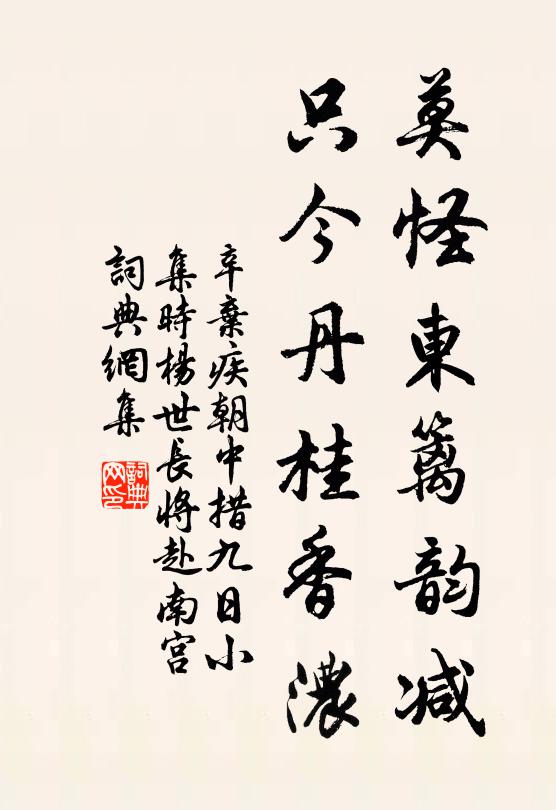 莫怪東籬韵减
只今丹桂香濃
辛棄疾朝中措九日小
集時楊世長將赴南宮
詞典網集
詞典
网印